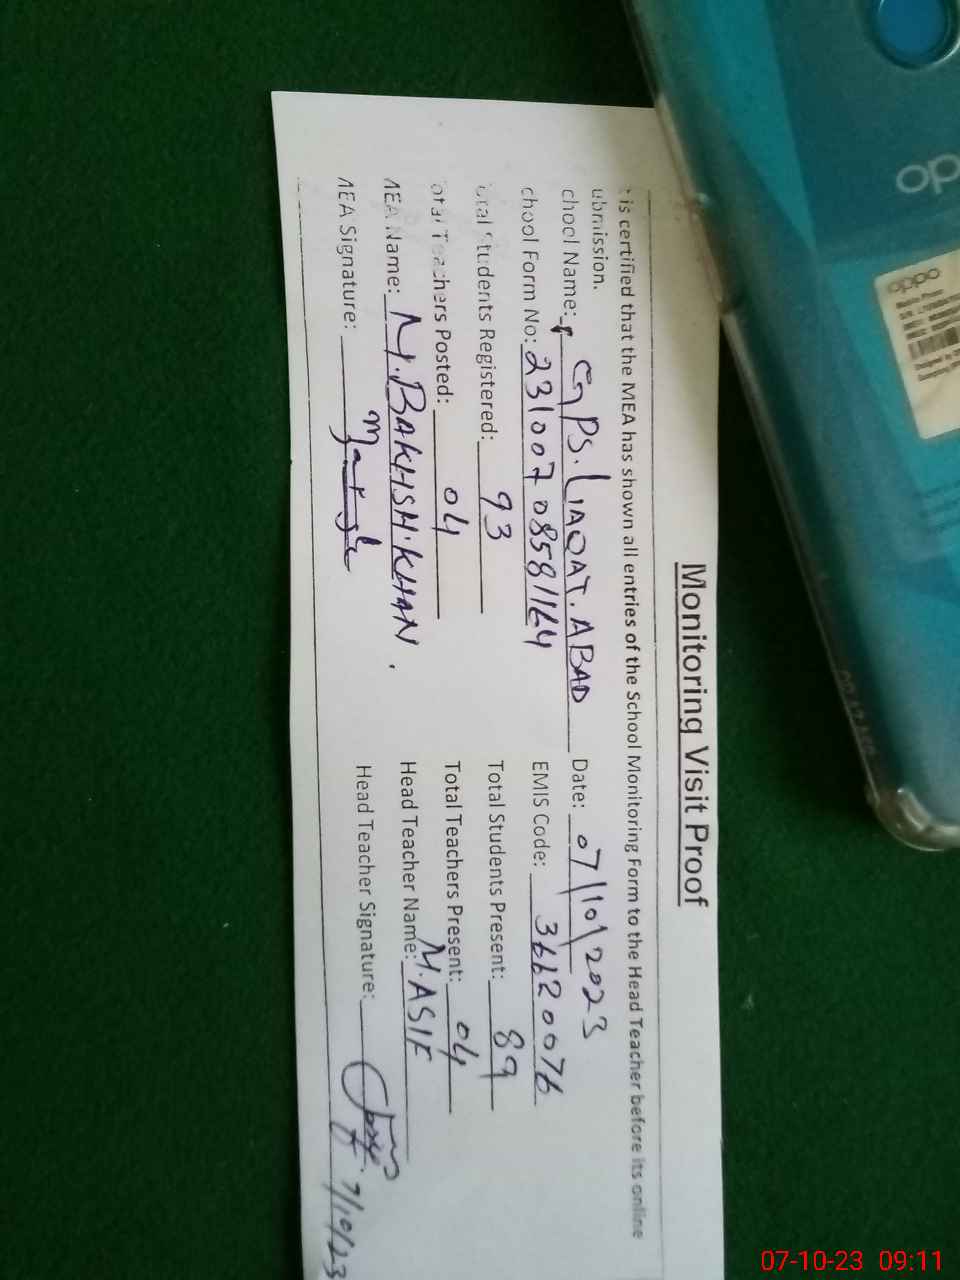 Monitoring Visit Proof
is certified that the MEA has shown all entries of the School Monitoring Form to the Head Teacher before its online
ubmission.
chool Name: GPS. LIAQAT. ABAD Date: 07/10/2023
chool Form No: 231007 08581164 EMIS Code: 36620076
otal Students Registered: 93 Total Students Present: 89
otal Teachers Posted: 04 Total Teachers Present: 04
MEA Name: M. BAKHSH. KHAN. Head Teacher Name: M. ASIF
MEA Signature: Head Teacher Signature: 7/10/23
oppo
oppo
07-10-23 09:11